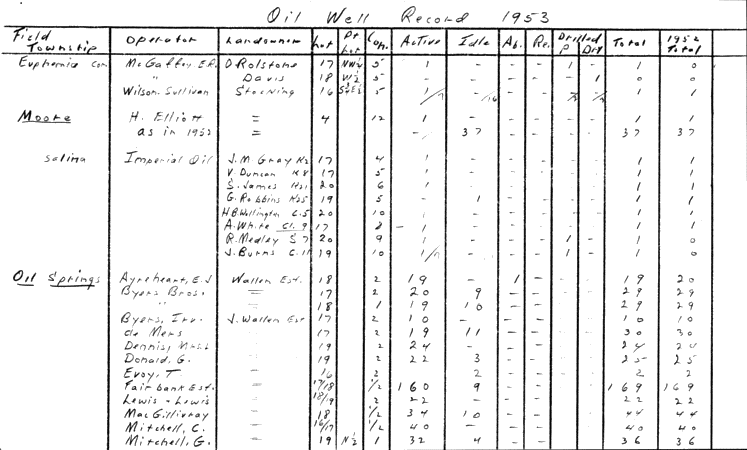 Oil Well Record 1953
Field Township Operator Landowner Lot Pt Lot Con. Active Idle Ab. Re. Drilled P Dry Total 1952 Total
Euphemia con McGaffey E.R. D. Rolstone 17 NW½ 5 1 - - - 1 - 1 0
" Davis 18 W½ 5 - - - - - 1 0 0
Wilson. Sullivan Stocking 16 5 1 1
Moore H. Elliott = 4 12 1 - - - - - 1 1
as in 1952 = - 37 - - - - 37 37
Salina Imperial Oil J. M. Gray 17 4 1 - - - - - 1 1
V. Duncan K8 17 5 1 - - - - - 1 1
S. James 20 6 1 - - - - - 1 1
G. Robbins 19 5 - 1 - - - - 1 1
H B Wellington C.5 20 10 1 - - - - - 1 1
A. White C1. 9 17 - 1 - - - - - 1 1
R. Medley S 7 20 9 1 - - - 1 - 1 0
J. Burns C. 11 19 10 - - - 1 - 1 0
Oil Springs Ayreheart, E. J Wallen Est. 18 2 19 - 1 - - - 19 20
Byers Bros. = 17 2 20 9 - - - - 29 29
" = 18 1 19 10 - - - - 29 29
Byers, Irv. J. Wallen Est 17 2 10 - - - - - 10 10
de Mers 17 2 19 11 - - - - 30 30
Dennis, Mrs. L 19 2 24 - - - - - 24 24
Donald, G. 19 2 22 3 - - - - 25 25
Evoy, T 16 2 - - - - 2 2
Fairbank Est. 17/18 1/2 160 9 - - - - 169 169
Lewis + Lewis 18/19 2 22 - - - - - 22 22
MacGillivray 18 1/2 34 10 - - - - 44 44
Mitchell, C. 16/17 1/2 40 - - - - - 40 40
Mitchell, G. 19 N½ 1 32 4 - - - - 36 36